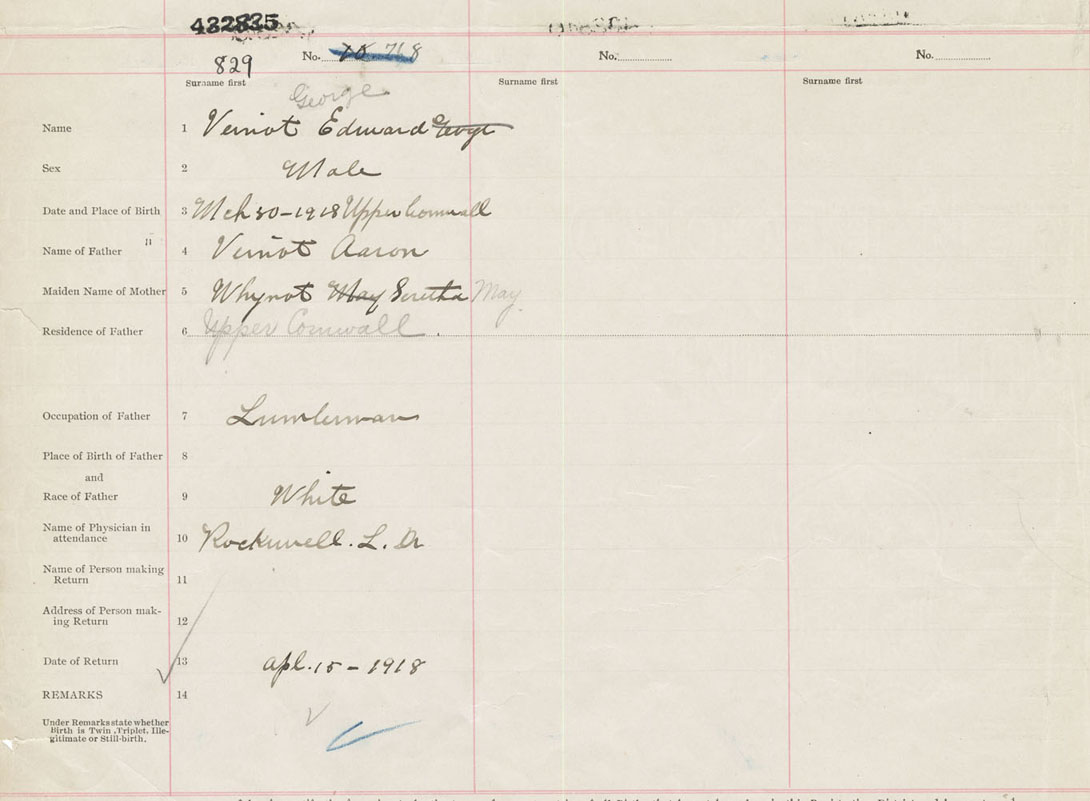 432835
829 No. 768 No. No.
Surname first Surname first Surname first
George
Name 1 Veinot Edward George
Sex 2 Male
Date and Place of Birth 3 Mch 30 - 1918 Upper Cornwall
Name of Father " 4 Veinot Aaron
Maiden Name of Mother 5 Whynot May Seretha May
Residence of Father 6 Upper Cornwall.
Occupation of Father 7 Lumberman
Place of Birth of Father 8
and
Race of Father 9 White
Name of Physician in
attendance 10 Rockwell. L. Dr
Name of Person making
Return 11
Address of Person mak-
ing Return 12
Date of Return 13 Apl. 15 - 1918
REMARKS 14
Under Remarks state whether
Birth is Twin, Triplet, Ille-
gitimate or Still-birth.